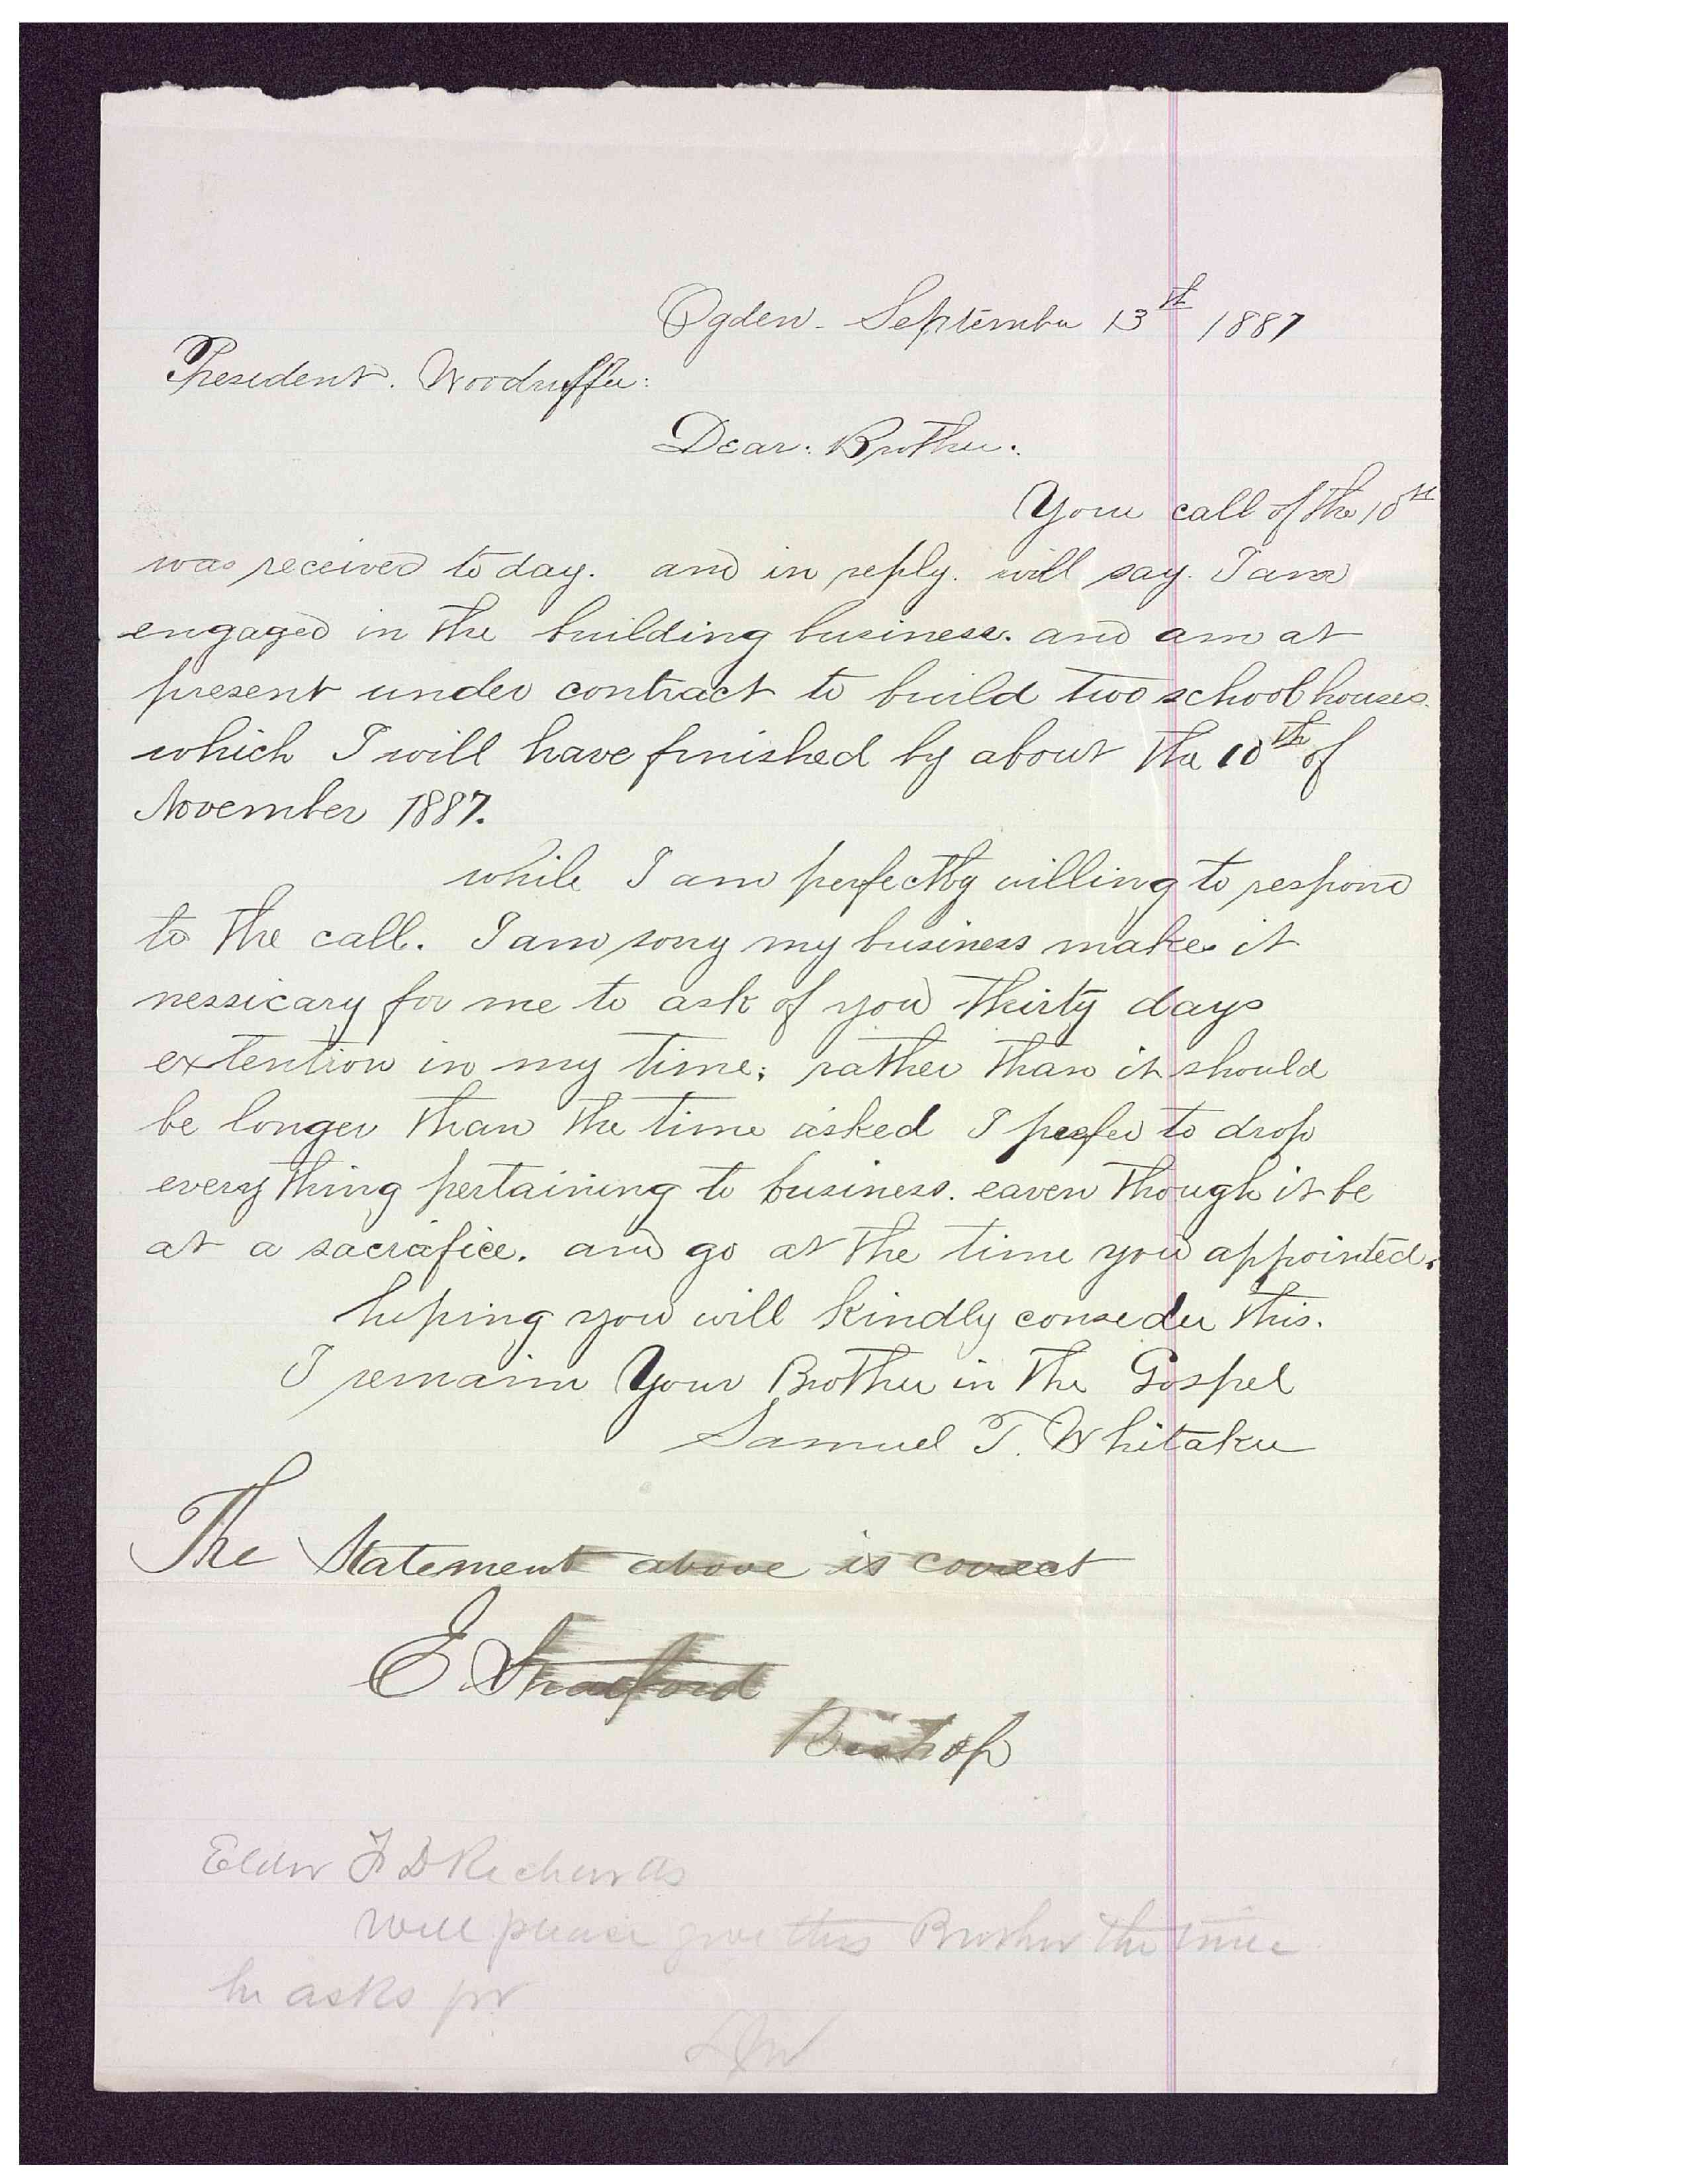 Ogden. September 13th 1887
President. Woodruffe:
Dear: Brother:
Your call of the 10th
was received to day. and in reply. will say. I am
engaged in the building business. and am at
present under contract to build two school houses.
which I will have finished by about the 10th of
November 1887.
while I am perfectly willing to respond
to the call. I am sorry my business makes it
nessicary for me to ask of you thirty days
extention in my time; rather than it should
be longer than the time asked I prefer to drop
every thing pertaining to business. eaven though it be
at a sacrafice. and go at the time you appointed.
hoping you will kindly conseder this.
I remain Your Brother in the Gospel
Samuel T. Whitaker
The Statement above is correct
E Stratford
Bishop
Elder F D Richards
Will please give this Brother the time
he asks for